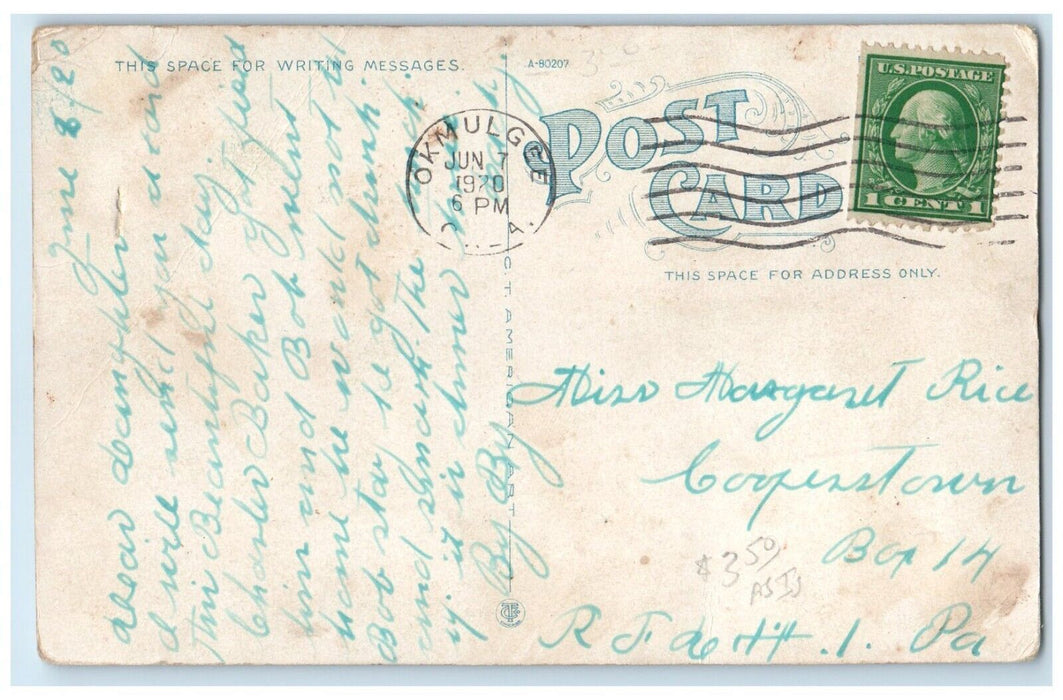 THIS SPACE FOR WRITING MESSAGES.
A-80207
POST CARD
THIS SPACE FOR ADDRESS ONLY.
U.S. POSTAGE
1 CENT 1
OKMULGEE
JUN 7
1920
6 PM
C. T. AMERICAN ART
June 8/20
Dear daughter
I will send you a card
This Beautiful day
Charles Baker got fired
him and Bob went
home he would not let
Bob stay he got drunk
and the
if it is
By By
Miss Margaret Rice
Cooperstown
Box 14
R F d # 1. Pa
$3.50
AS IS